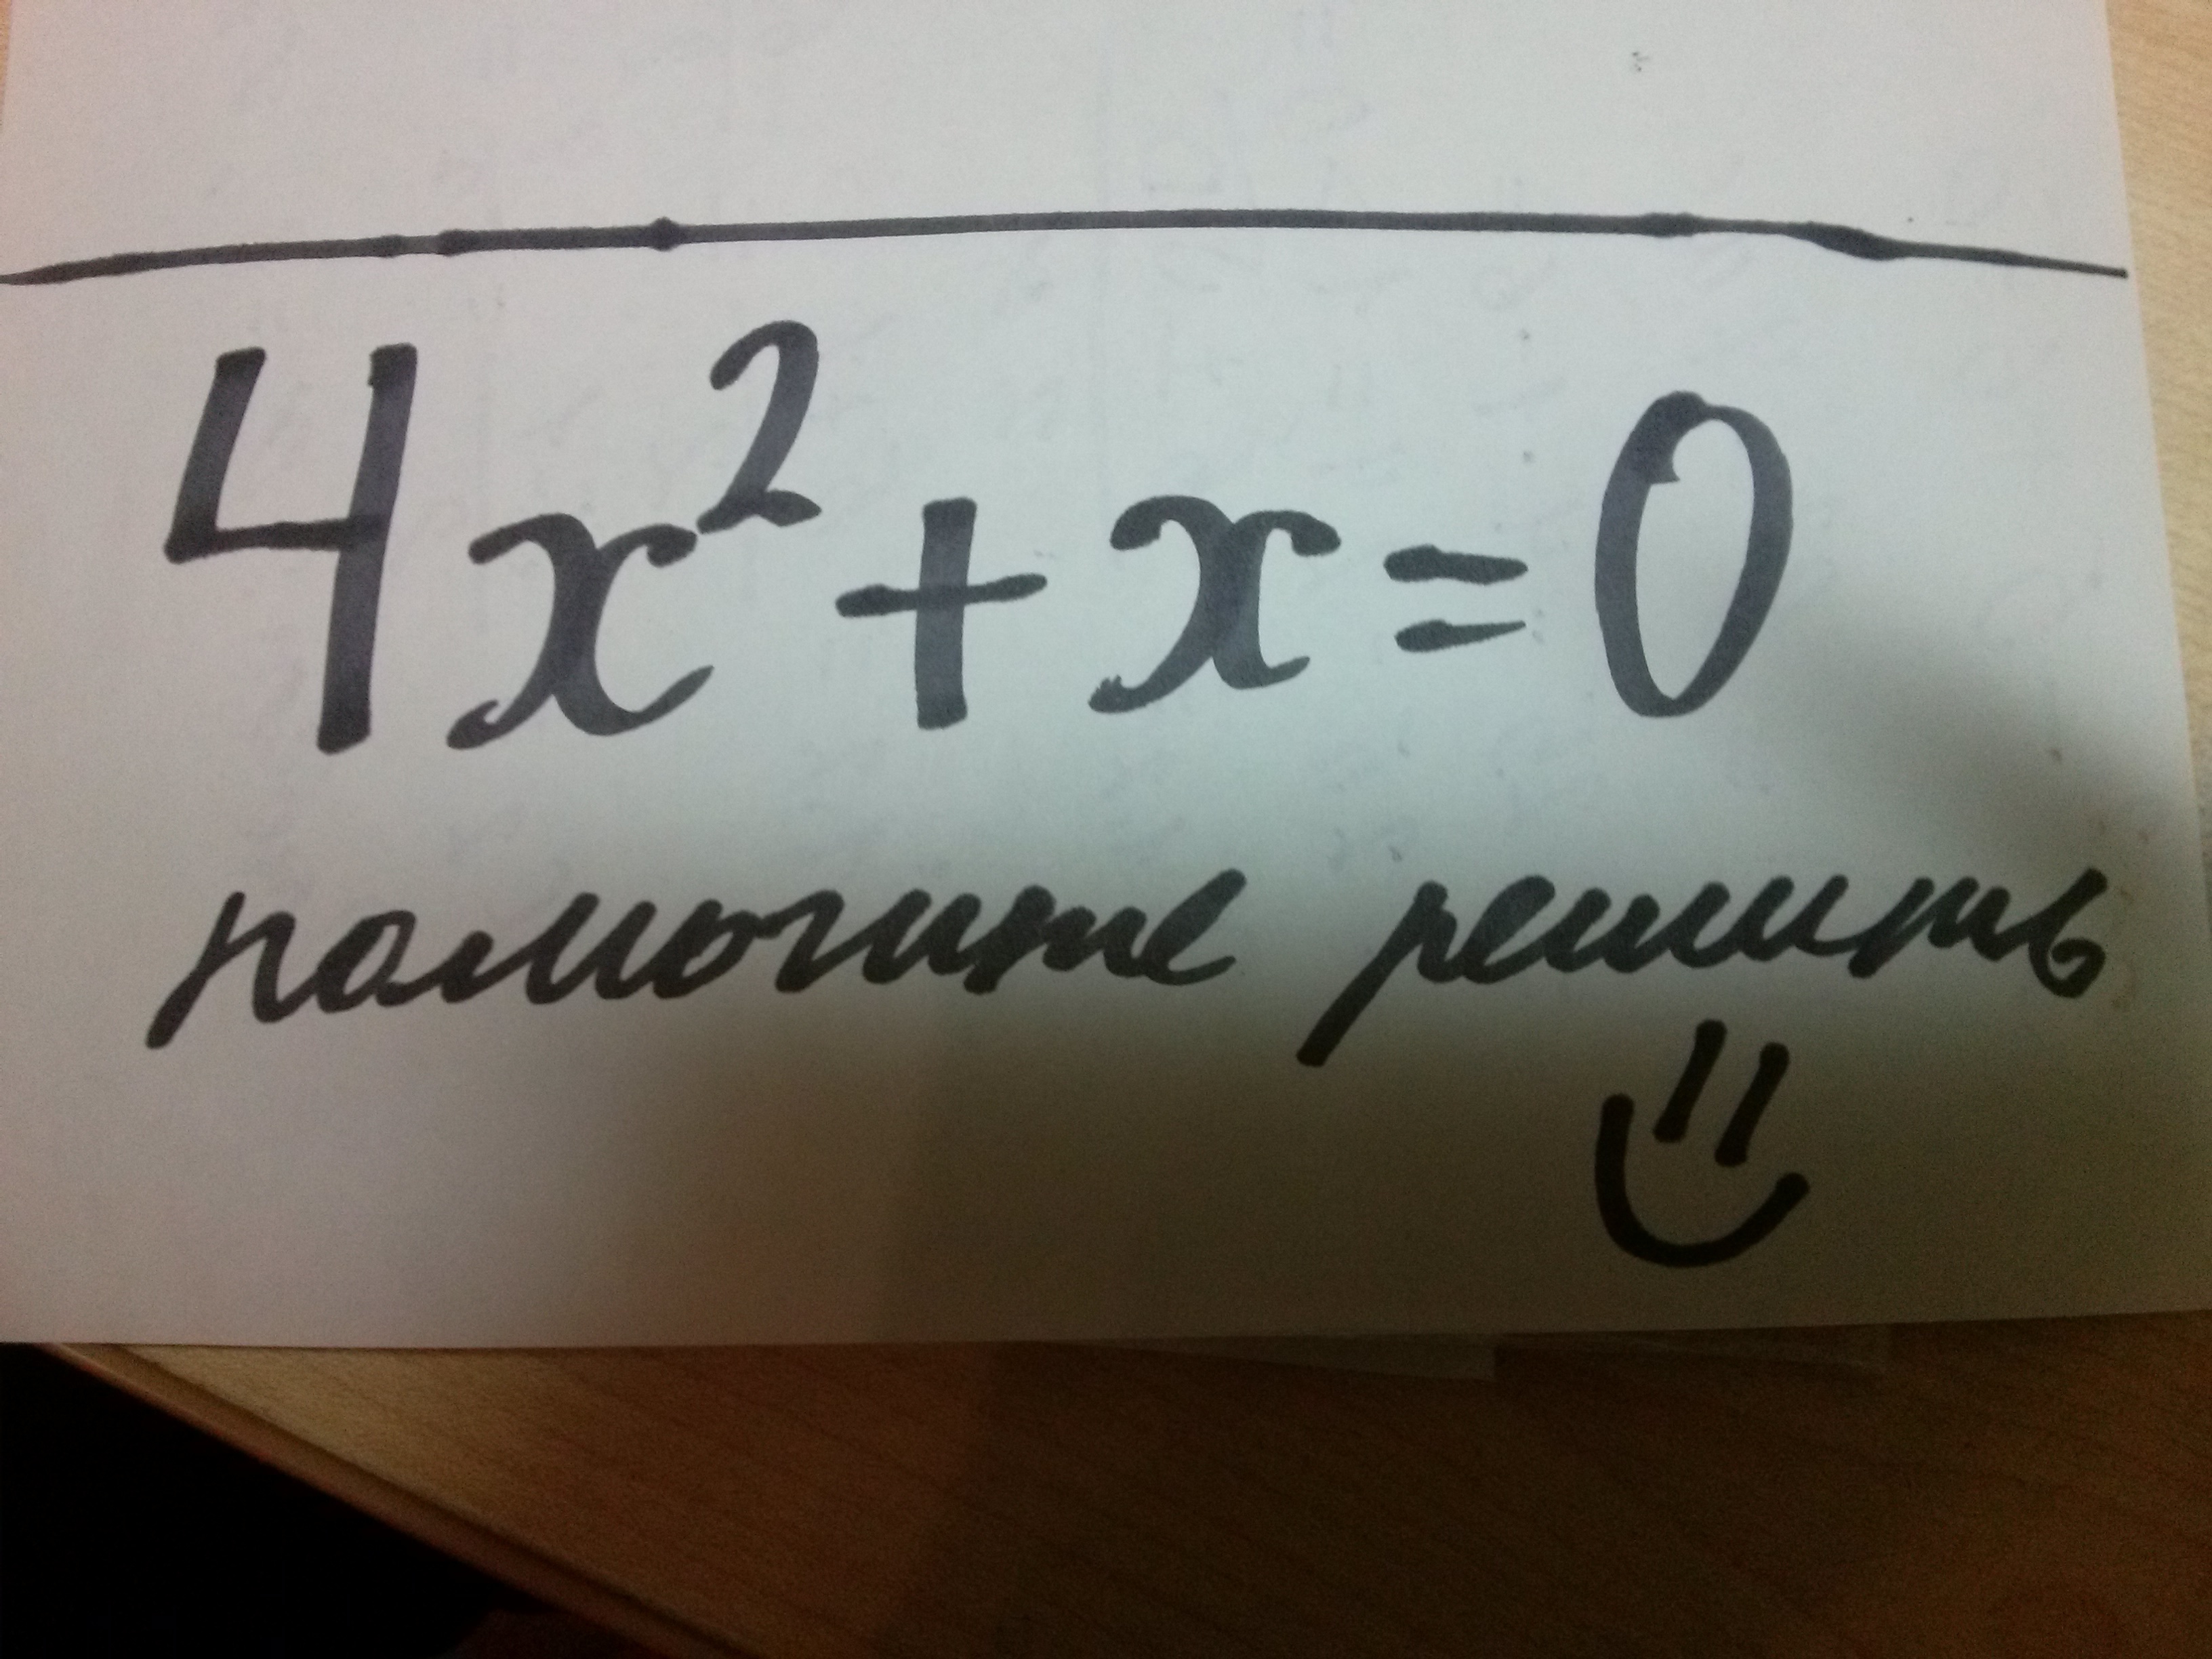 4x²+x=0
помогите решить